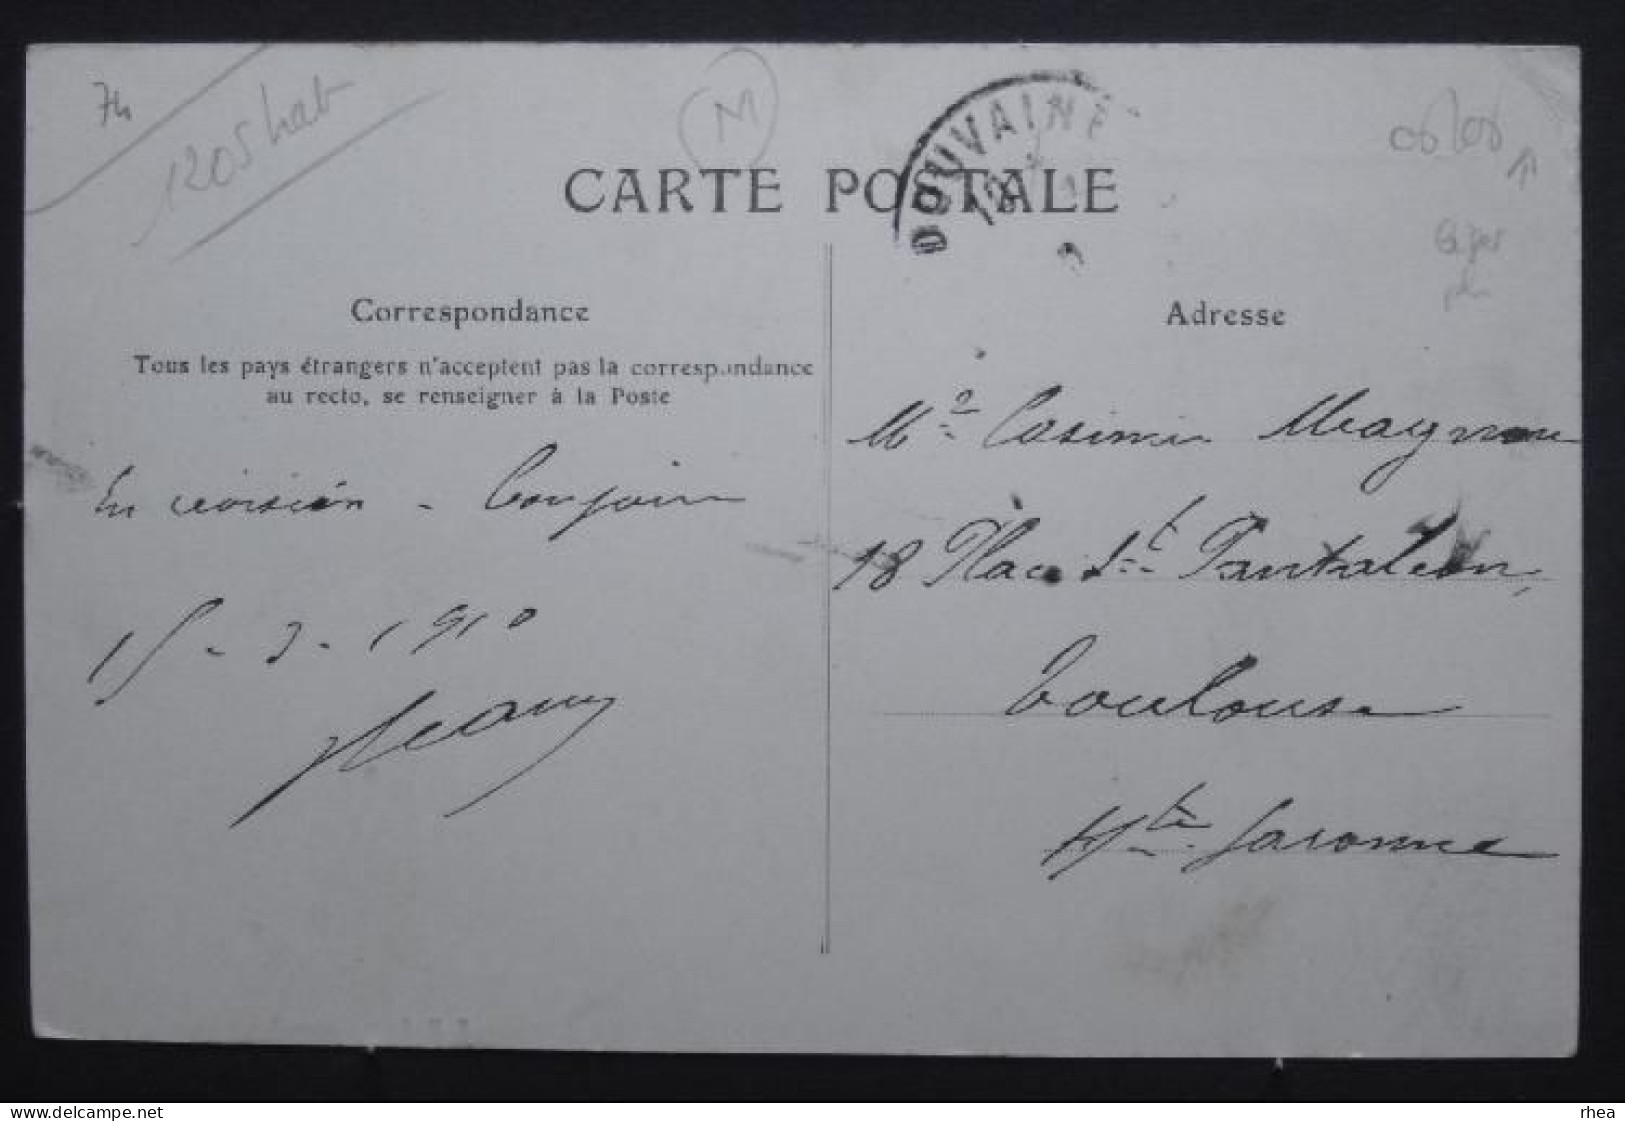 74
1205 hab
M
DOUVAINE
CARTE POSTALE
Correspondance
Tous les pays étrangers n'acceptent pas la correspondance
au recto, se renseigner à la Poste
En révision - Bonjour
15-3-1910
Adresse
Mr Casimir Magnon
18 Place St Pantaléon,
Toulouse
Hte Garonne
www.delcampe.net
rhea